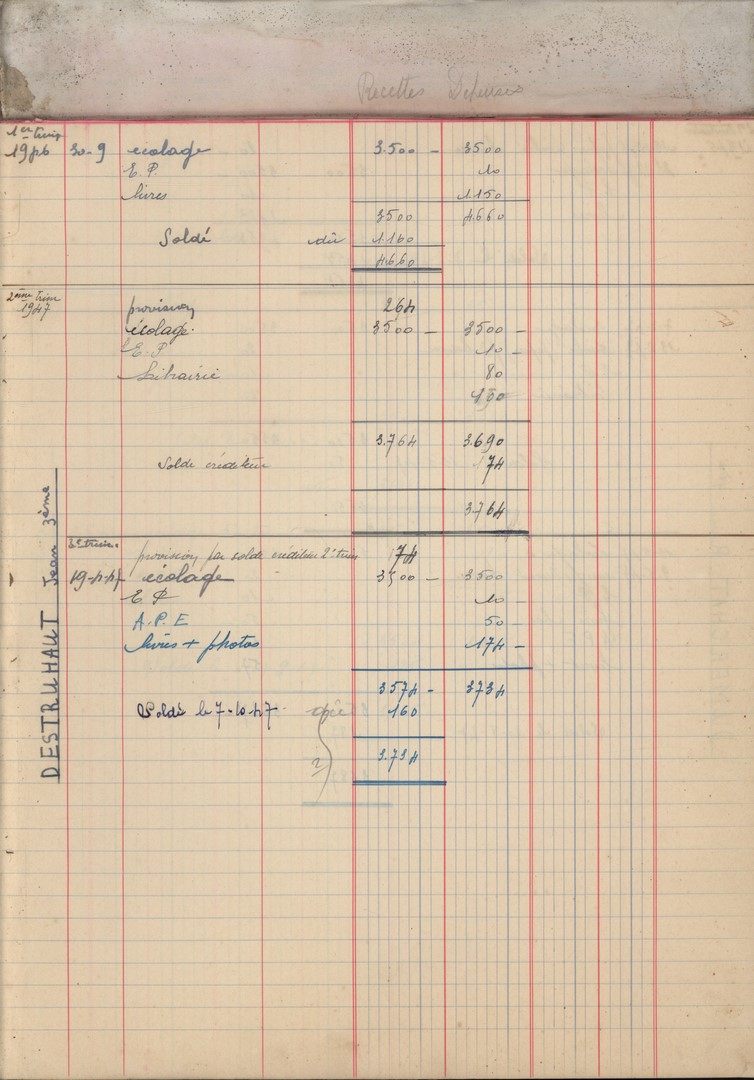 Recettes Dépenses
1er trim
1946 30-9 écolage 3.500 - 3500
E. P. 10
livres 1.150
3500 4660
Soldé dû 1.160
4660
2ème trim
1947
provision 264
écolage 3500 - 3500 -
E. P 10 -
Librairie 80
100
3.764 3.690
Solde créditeur 174
3.764
3e trim.
provision par solde créditeur 2e trim 74
19-4-47 écolage 3500 - 3500
E. P 10 -
A. P. E 50 -
livres + photos 174 -
3574 - 3734
Soldé le 7-10-47 160
3.734
DESTRUHAUT Jean 3ème